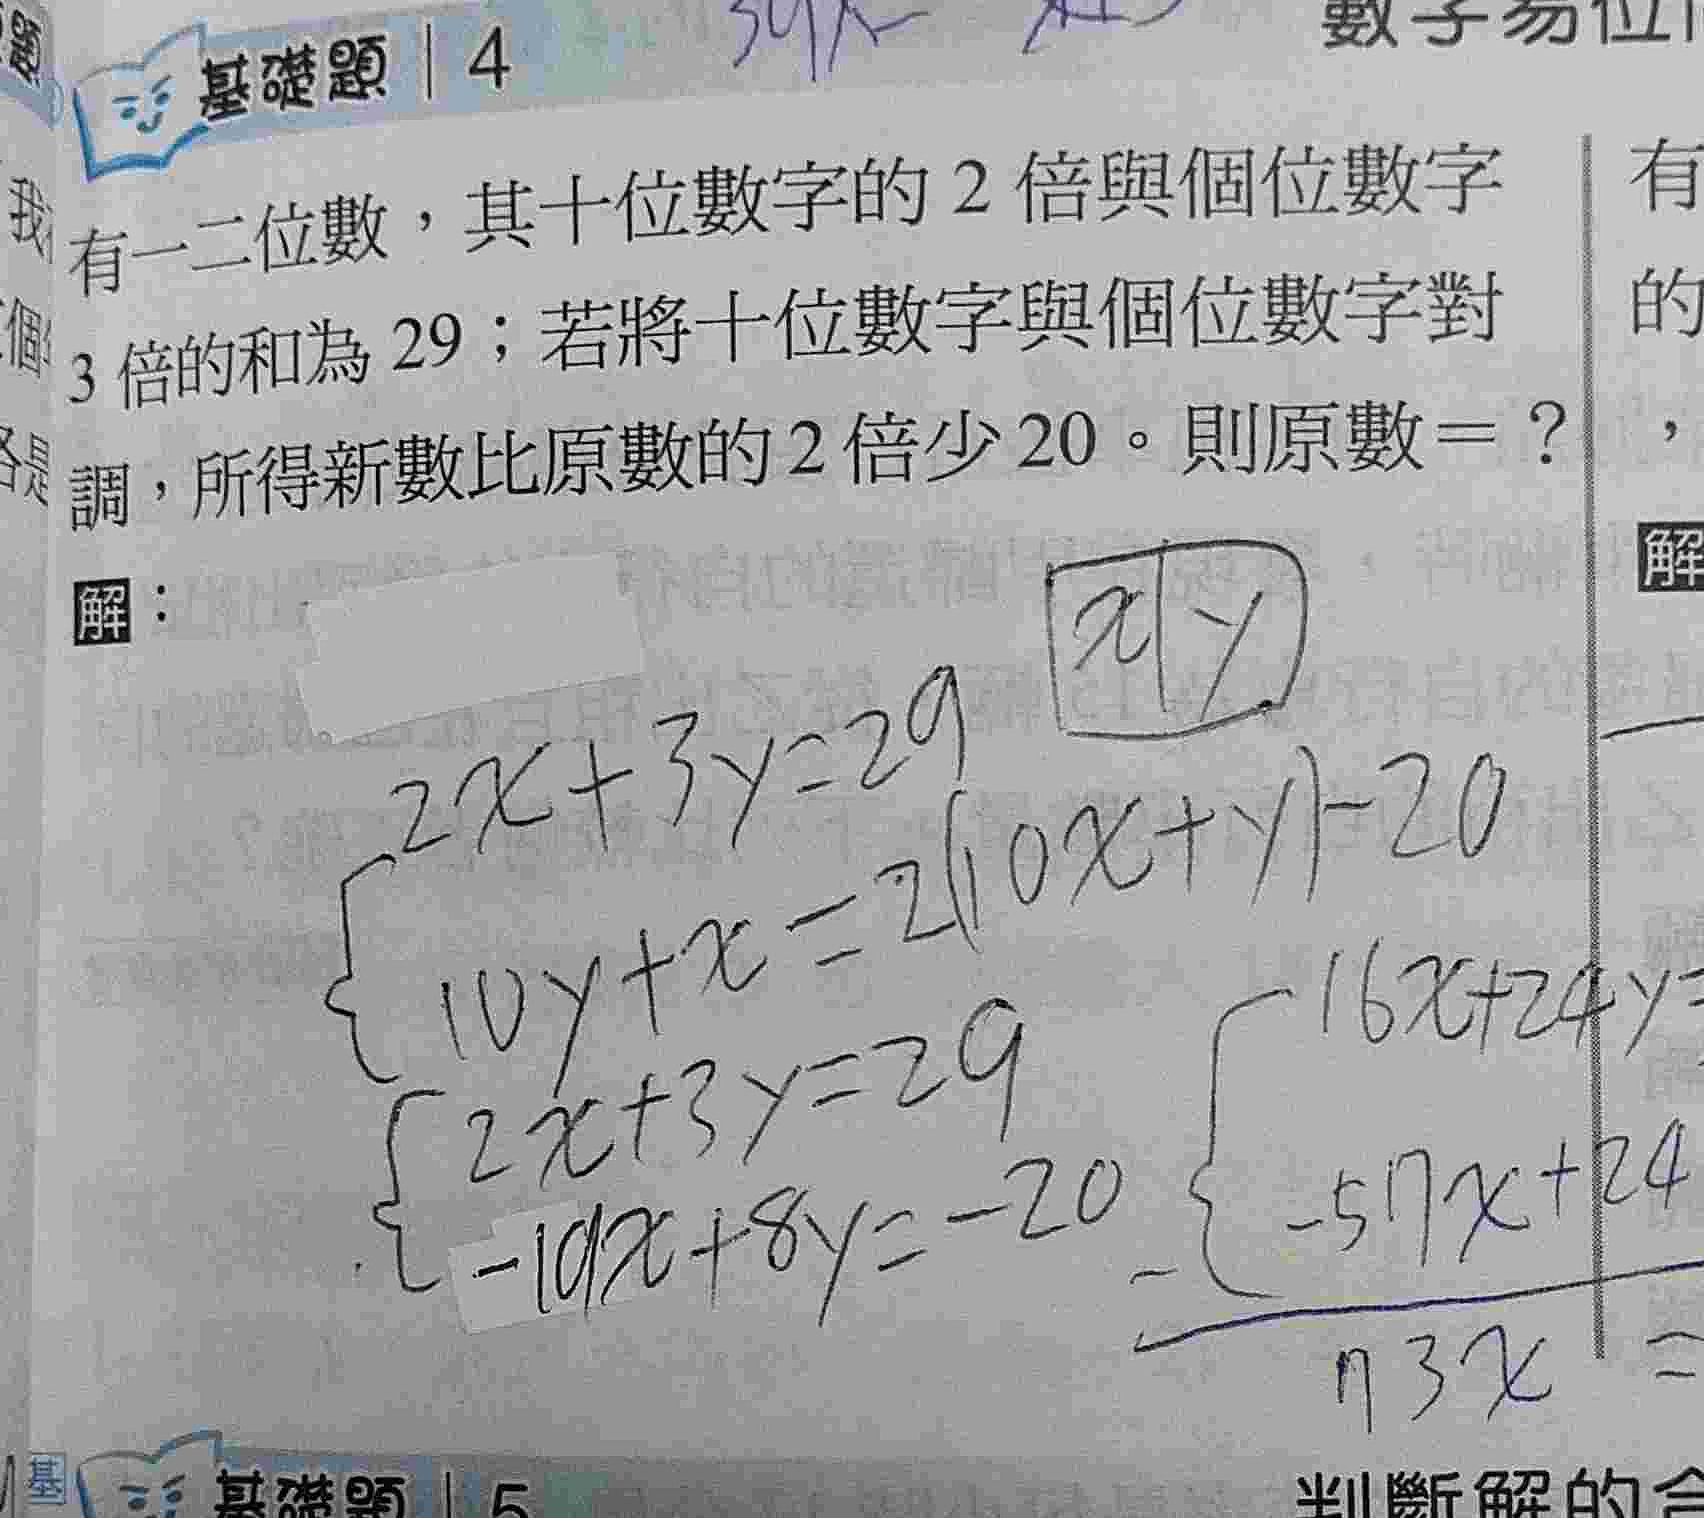 題
基礎題 | 4
數字易位
有一二位數，其十位數字的 2 倍與個位數字
3 倍的和為 29；若將十位數字與個位數字對
調，所得新數比原數的 2 倍少 20。則原數＝？
解：
x|y
2x+3y=29
10y+x=2(10x+y)-20
2x+3y=29
-19x+8y=-20
16x+24y=
-57x+24
73x =
我
個
是
有
的
，
解
基
基礎題 | 5
判斷解的合